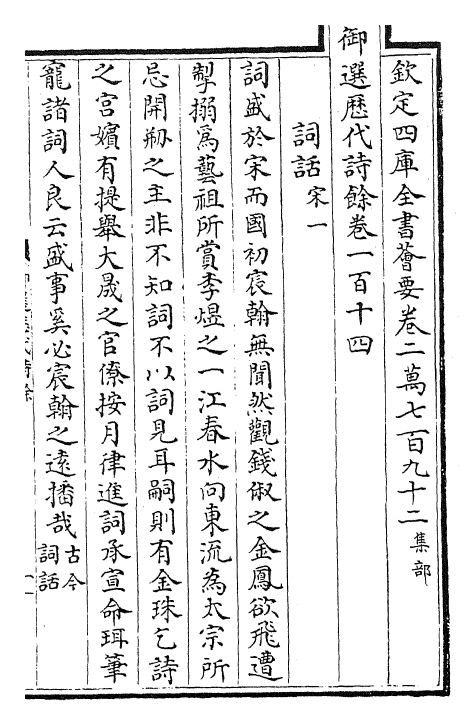 欽定四庫全書薈要卷二萬七百九十二集部
御選歴代詩餘卷一百十四
詞話宋一
詞盛於宋而國初宸翰無聞然觀錢俶之金鳳欲飛遭
掣搦為藝祖所賞李煜之一江春水向東流為太宗所
忌開剏之主非不知詞不以詞見耳嗣則有金珠乞詩
之宮嬪有提舉大晟之官僚按月律進詞承宣命珥筆
寵諸詞人良云盛事奚必宸翰之遠播哉古今詞話